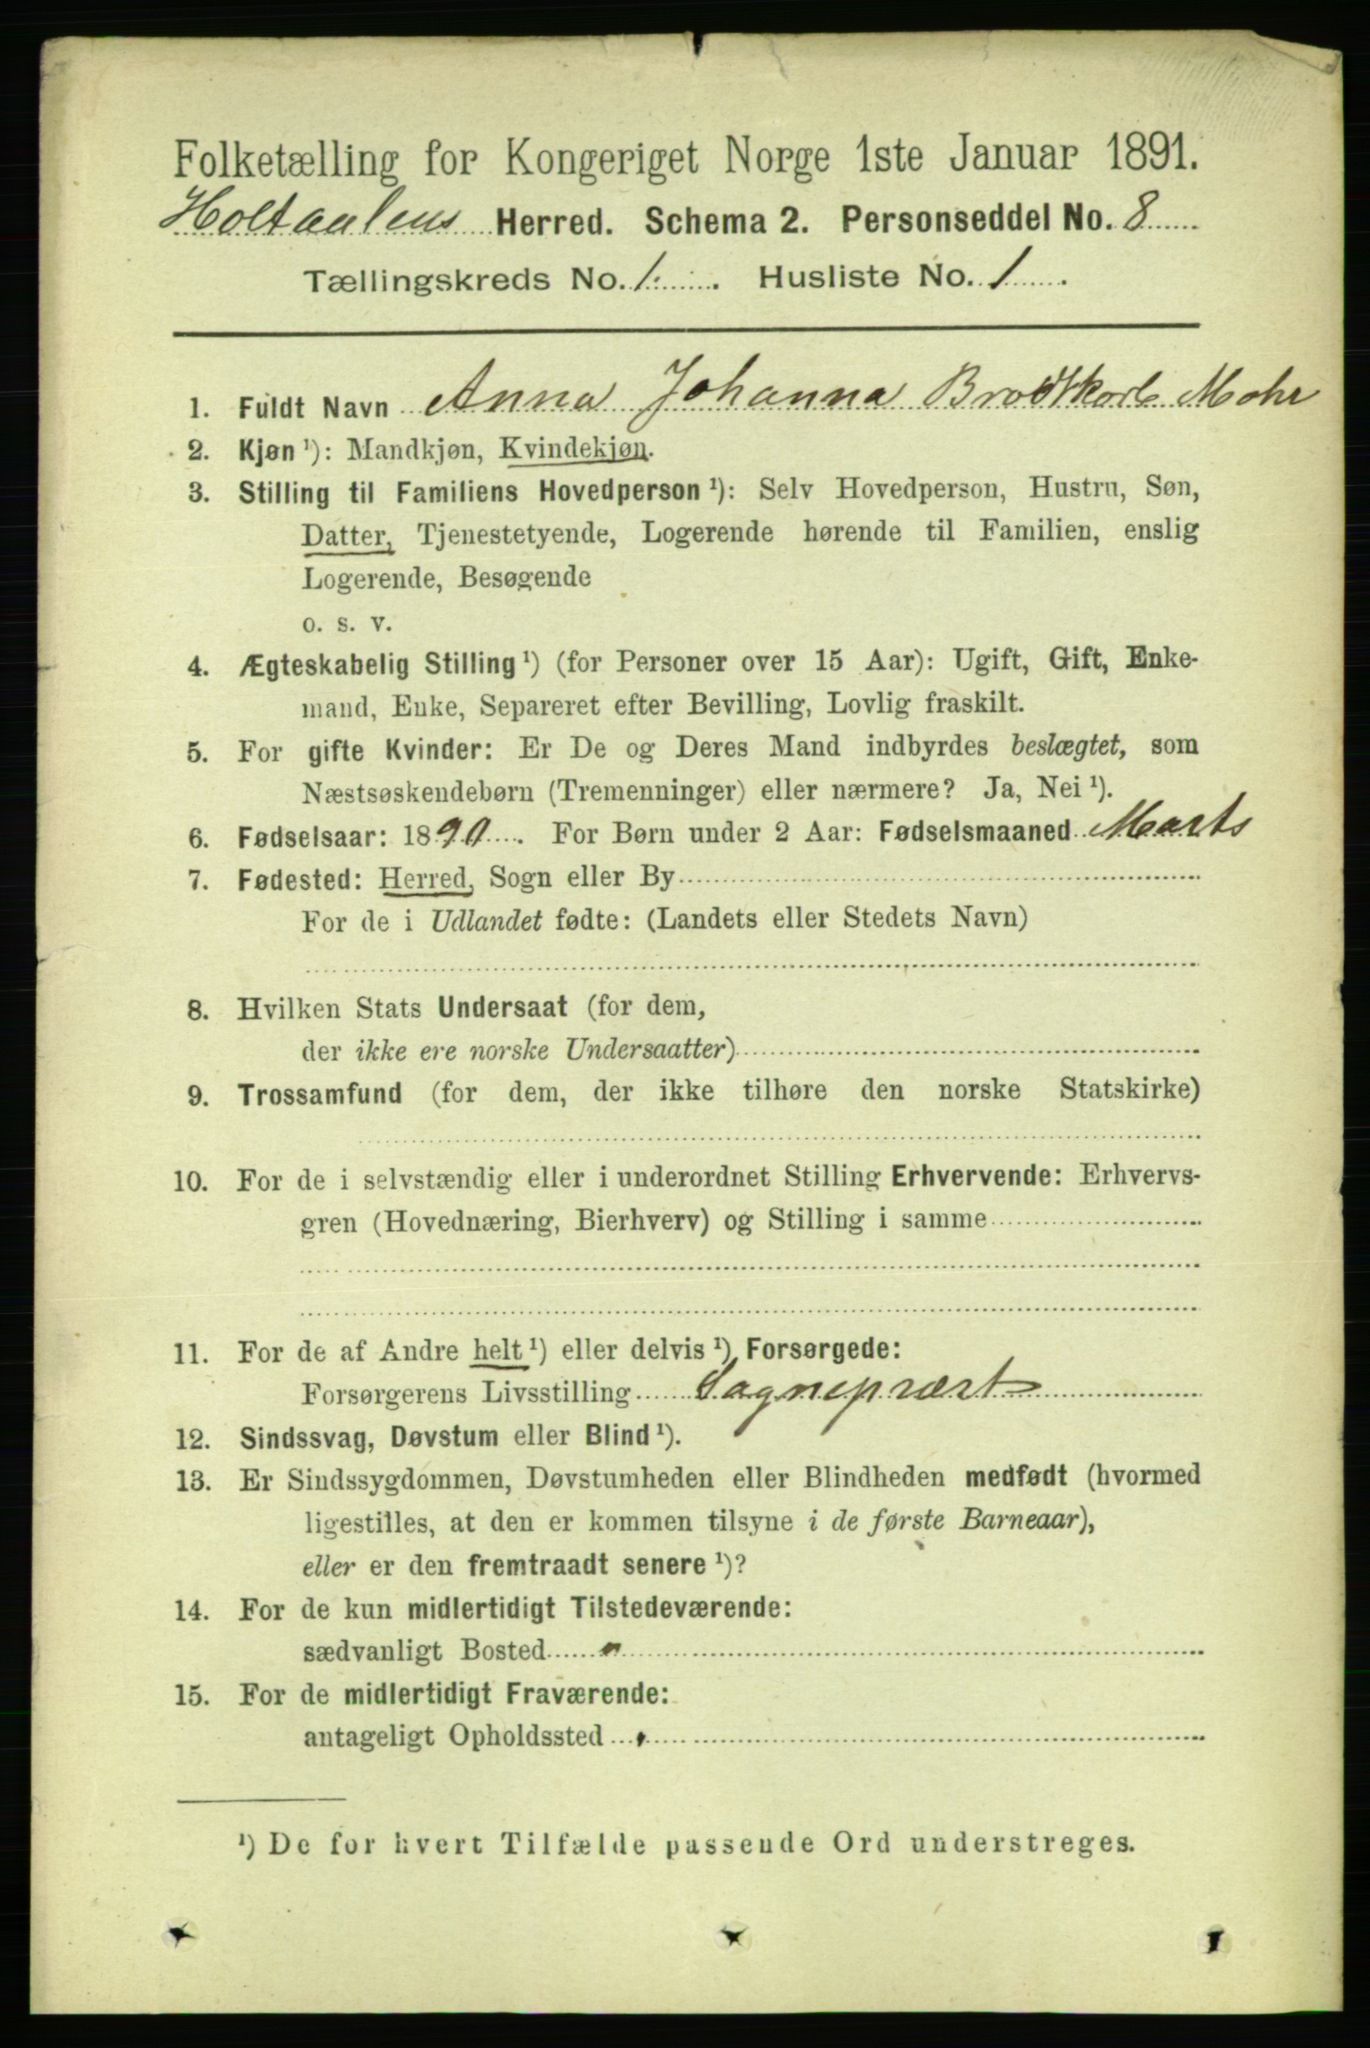 Folketælling for Kongeriget Norge 1ste Januar 1891.
Holtaalens Herred. Schema 2. Personseddel No. 8
Tællingskreds No. 1. Husliste No. 1
1. Fuldt Navn Anna Johanna Brodtkorb Mohr
2. Kjøn ¹): Mandkjøn, Kvindekjøn.
3. Stilling til Familiens Hovedperson ¹): Selv Hovedperson, Hustru, Søn,
Datter, Tjenestetyende, Logerende hørende til Familien, enslig
Logerende, Besøgende
o. s. v.
4. Ægteskabelig Stilling ¹) (for Personer over 15 Aar): Ugift, Gift, Enke-
mand, Enke, Separeret efter Bevilling, Lovlig fraskilt.
5. For gifte Kvinder: Er De og Deres Mand indbyrdes beslægtet, som
Næstsøskendebørn (Tremenninger) eller nærmere? Ja, Nei ¹).
6. Fødselsaar: 1890. For Børn under 2 Aar: Fødselsmaaned Marts
7. Fødested: Herred, Sogn eller By
For de i Udlandet fødte: (Landets eller Stedets Navn)
8. Hvilken Stats Undersaat (for dem,
der ikke ere norske Undersaatter)
9. Trossamfund (for dem, der ikke tilhøre den norske Statskirke)
10. For de i selvstændig eller i underordnet Stilling Erhvervende: Erhvervs-
gren (Hovednæring, Bierhverv) og Stilling i samme
11. For de af Andre helt ¹) eller delvis ¹) Forsørgede:
Forsørgerens Livsstilling Sognepræst
12. Sindssvag, Døvstum eller Blind ¹).
13. Er Sindssygdommen, Døvstumheden eller Blindheden medfødt (hvormed
ligestilles, at den er kommen tilsyne i de første Barneaar),
eller er den fremtraadt senere ¹)?
14. For de kun midlertidigt Tilstedeværende:
sædvanligt Bosted
15. For de midlertidigt Fraværende:
antageligt Opholdssted
¹) De for hvert Tilfælde passende Ord understreges.